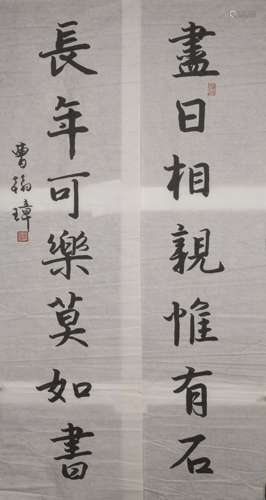 盡日相親惟有石
長年可樂莫如書
曹翰璋